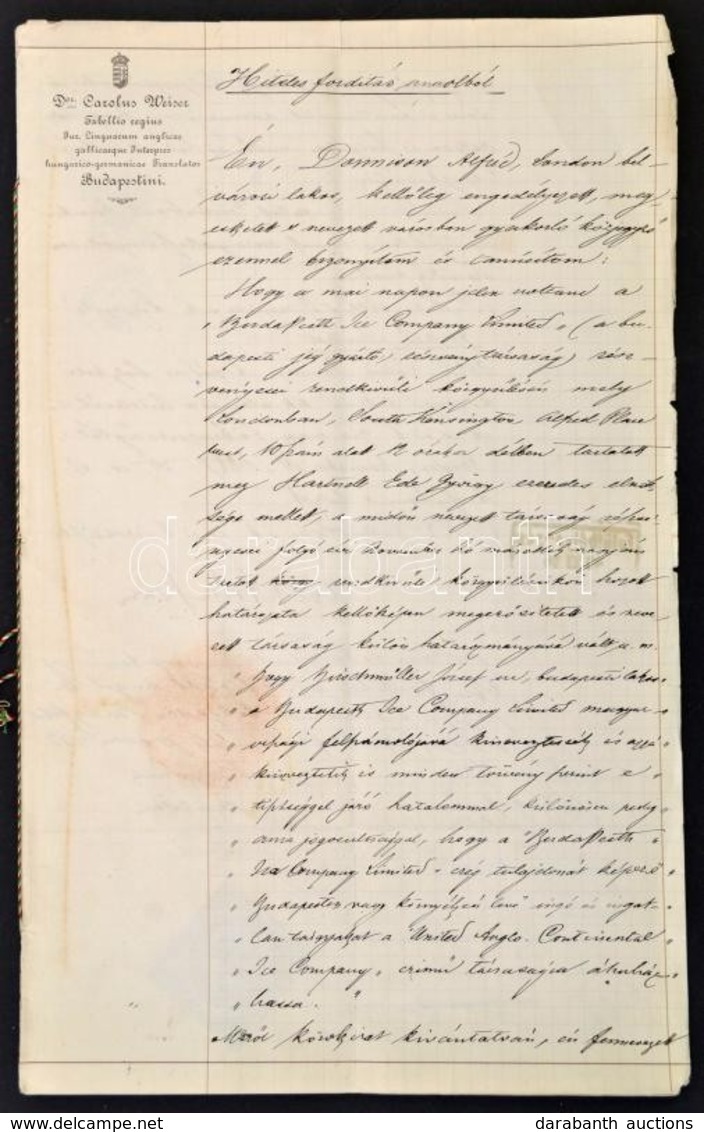 Dor. Carolus Weiser
Tabellio regius
Jur. Linguarum anglicae
gallicaeque Interpres
hungarico-germanicae Translator
Budapestini.
Hiteles fordítás angolból
Én, Dannison Alfréd, London bel-
városi lakos, kellőleg engedélyezett, meg-
esketett s nevezett városban gyakorló közjegyző
ezennel bizonyítom és tanúsítom:
Hogy a mai napon jelen voltam a
"BudaPesth Ice Company Limited" (a bu-
dapesti jég gyártó részvénytársaság) rész-
vényesei rendkívüli közgyűlésén mely
Londonban, South Kensington Alfred Place
10 szám alatt 12 órakor délben tartatott
meg Hartnell Ede György ezredes elnök-
sége mellett, a midőn nevezett társaság
folyó évi November hó
rendkívüli közgyűlésükön hozott
határozata kellőképen megerősítetett és neve-
zett társaság külön határozmányává vált u. m.
" Hogy Hirschmüller József úr, budapesti lakos
" a Budapesth Ice Company Limited magyar-
" országi felszámolójává kineveztessék és
" kineveztetik is minden törvény szerint e
" tisztséggel járó hatalommal, különösen pedig
" ama jogosultsággal, hogy a "BudaPesth
" Ice Company Limited" cég tulajdonát képező
" Budapesten vagy környékén levő ingó és ingat-
" lan tárgyakat a "United Anglo. Continental
" Ice Company" czimű társaságra átruház-
" hassa. "
Miről közokirat kívántatván, én fennevezett
darabanth
darabanth auctions